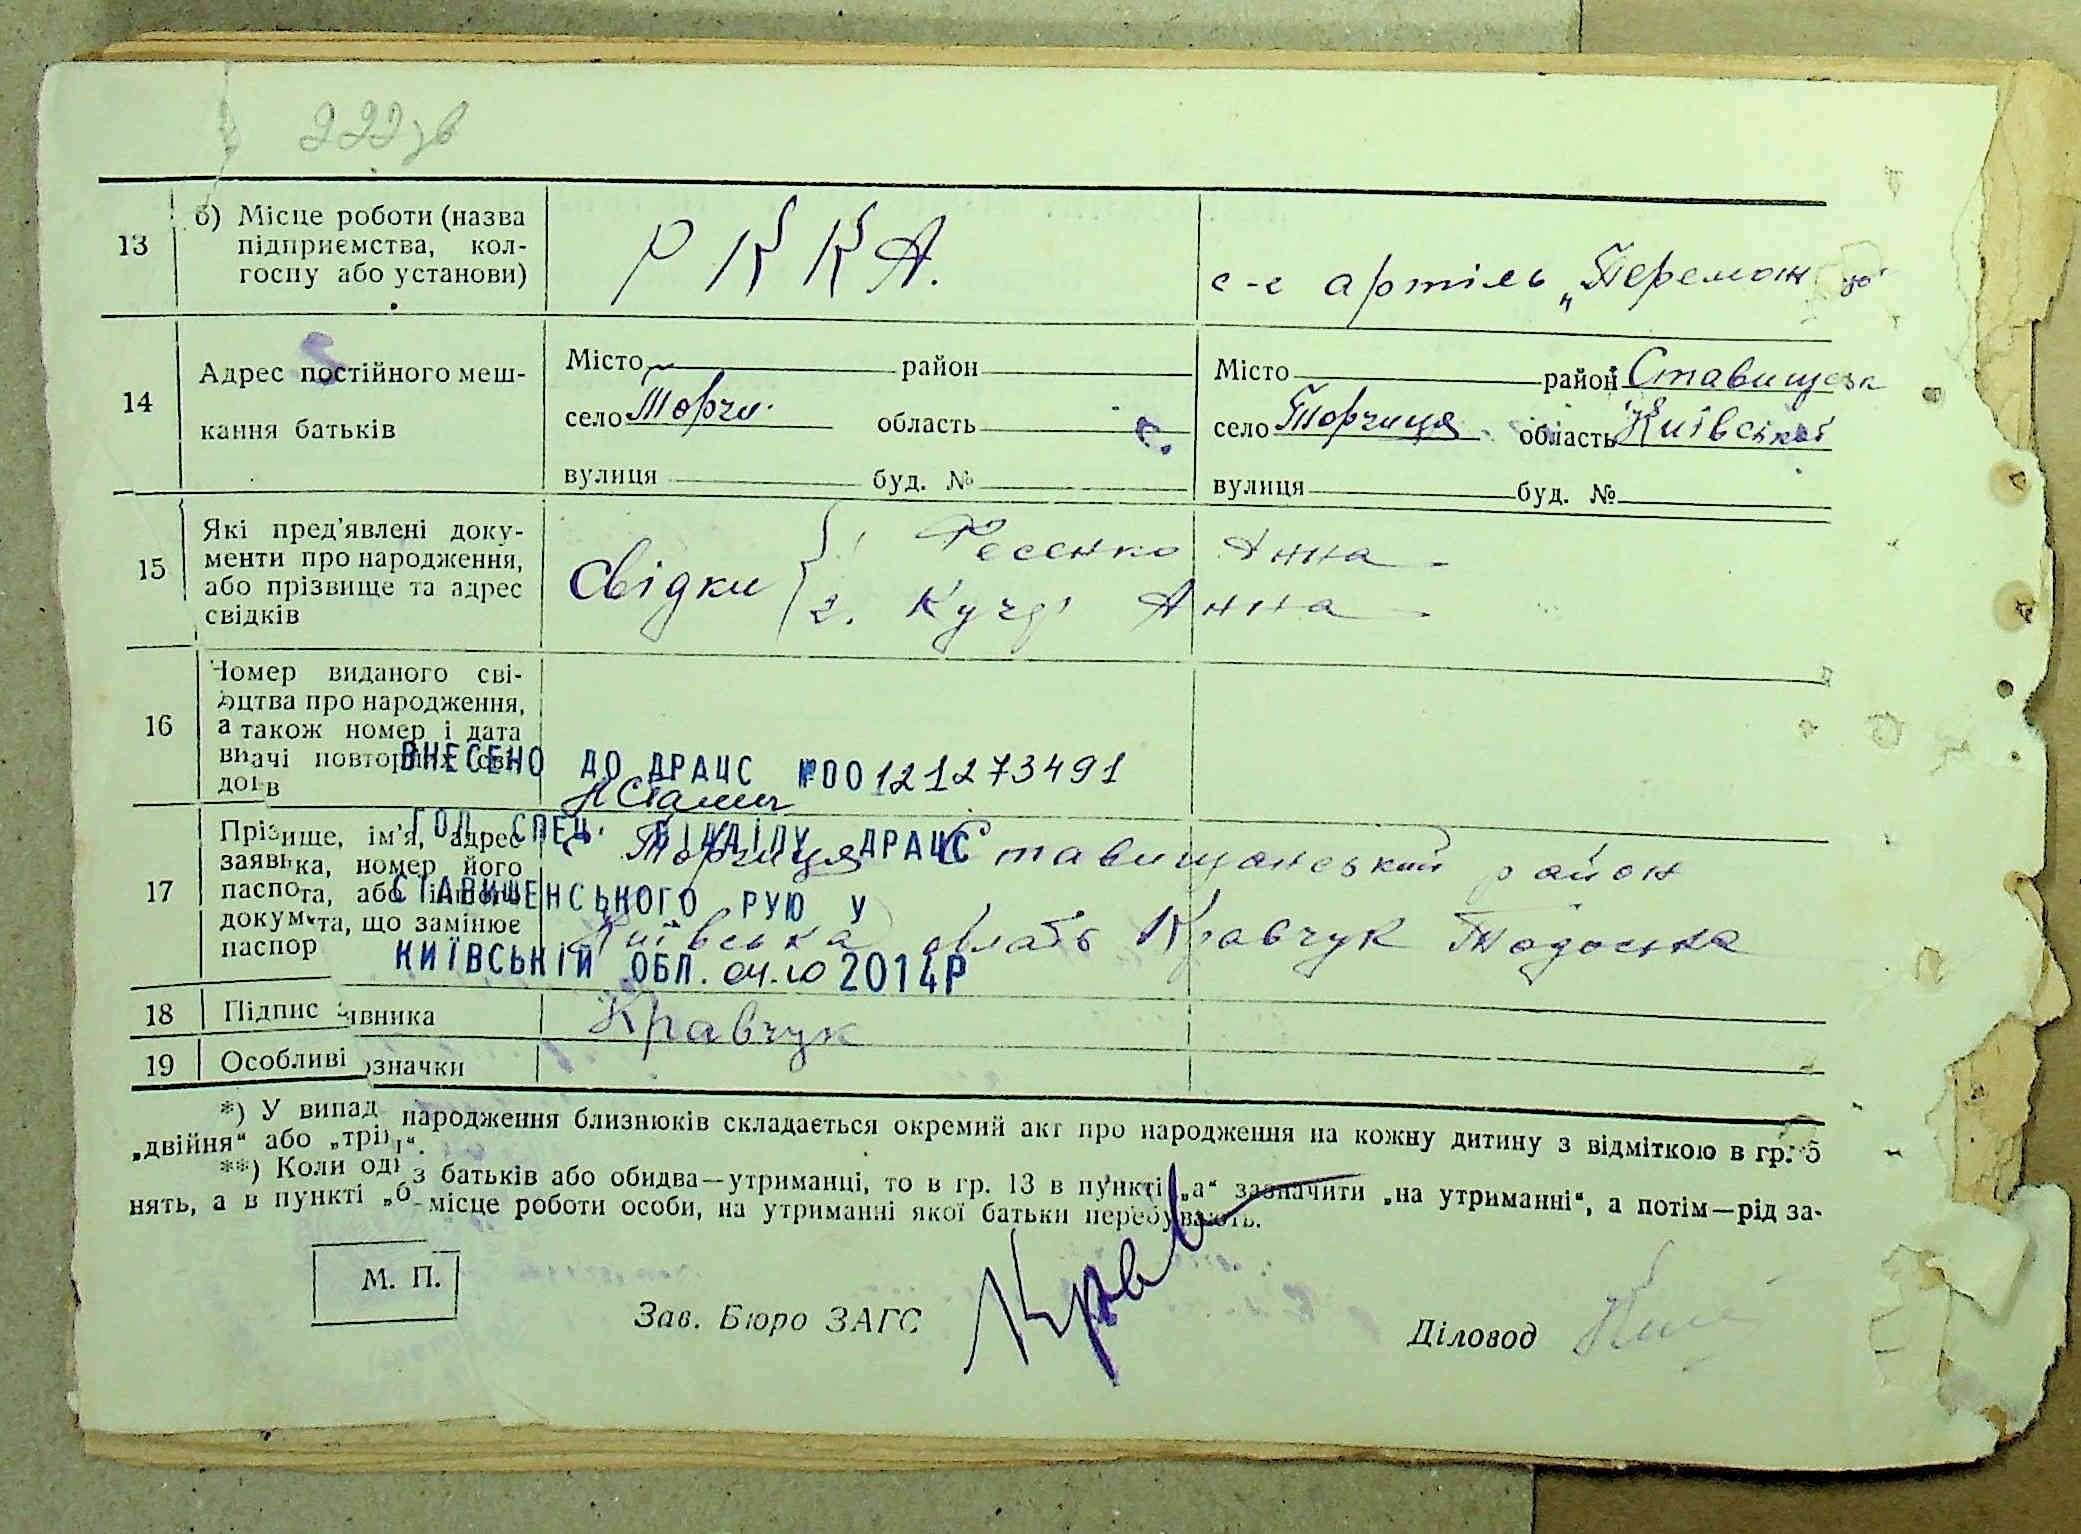 222зв
13 б) Місце роботи (назва
підприємства, кол-
госпу або установи)
РККА.
с-г артіль „Переможць"
14 Адрес постійного меш-
кання батьків
Місто район
село Торчи. область
вулиця буд. №
Місто район Ставищеськ
село Торчиця область Київської
вулиця буд. №
15 Які пред'явлені доку-
менти про народження,
або прізвище та адрес
свідків
Свідки
1. Фесенко Анна
2. Кучер Анна
16 Номер виданого сві-
доцтва про народження,
а також номер і дата
видачі повторних сві-
доцтв
ВНЕСЕНО ДО ДРАЦС №00121273491
ГОЛ. СПЕЦ. ВІДДІЛУ ДРАЦС
СТАВИЩЕНСЬКОГО РУЮ У
КИЇВСЬКІЙ ОБЛ. 04.10 2014Р
17 Прізвище, ім'я, адрес
заявника, номер його
паспорта, або іншого
документа, що замінює
паспорт
с. Торчиця Ставищанський район
Київська область Кравчук Тодоська
18 Підпис заявника
Кравчук
19 Особливі зазначки
*) У випад народження близнюків складається окремий акт про народження на кожну дитину з відміткою в гр. 5
„двійня" або „трійня".
**) Коли оди з батьків або обидва—утриманці, то в гр. 13 в пункті „а" зазначити „на утриманні", а потім—рід за-
нять, а в пункті „б місце роботи особи, на утриманні якої батьки перебувають.
М. П.
Зав. Бюро ЗАГС
Діловод